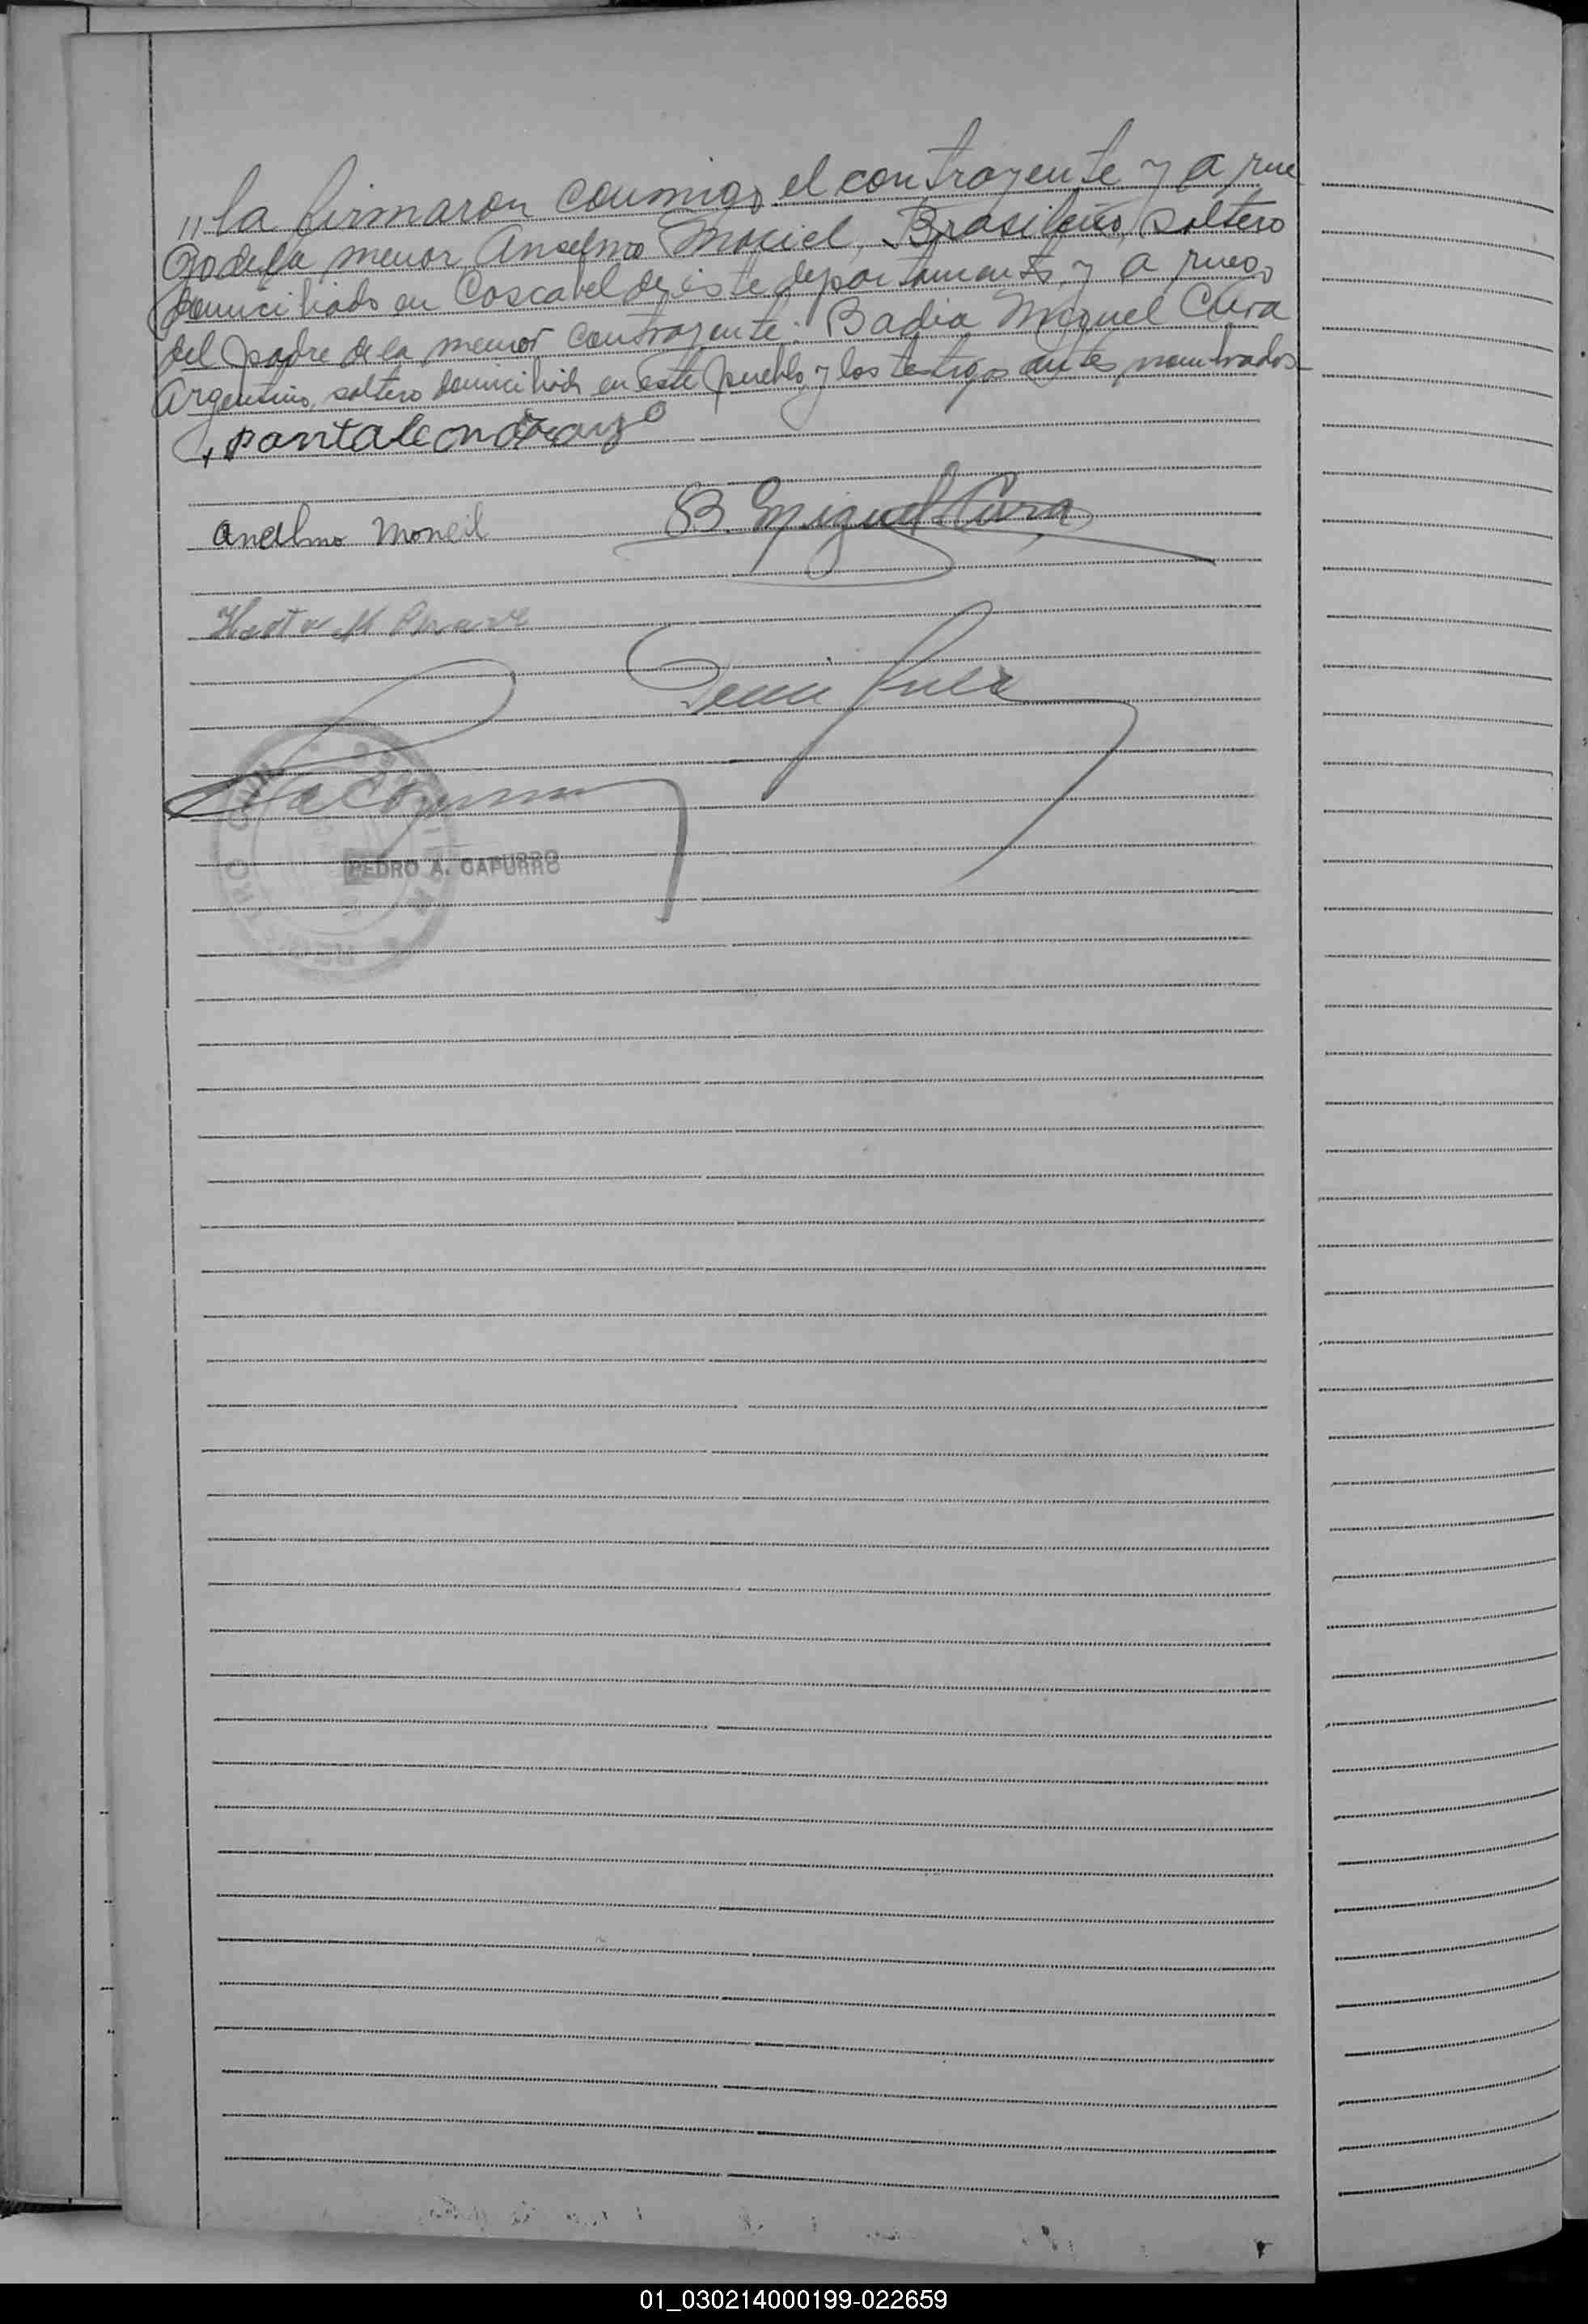 "la firmaron conmigo el contrayente y a rue
go de la menor Anselmo Maciel, Brasileño, soltero
domiciliado en Cascabel de este departamento, y a ruego
del padre de la menor contrayente: Badia Miguel Cura
Argentino, soltero domiciliado en este pueblo y los testigos antes nombrados
Pantaleon
B. Miguel Cura
Anselmo
Hector M
PEDRO A. CAPURRO
01_030214000199-022659